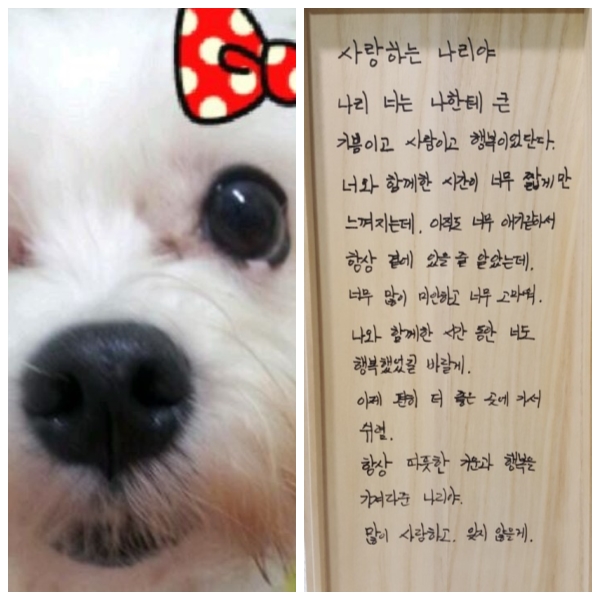 사랑하는 나리야
나리 너는 나한테 큰
기쁨이고 사랑이고 행복이었단다.
너와 함께한 시간이 너무 짧게만
느껴지는데. 아직도 너무 애기같아서
항상 곁에 있을 줄 알았는데.
너무 많이 미안하고 너무 고마워.
나와 함께한 시간 동안 너도
행복했었길 바랄게.
이제 편히 더 좋은 곳에 가서
쉬렴.
항상 따뜻한 기운과 행복을
가져다준 나리야.
많이 사랑하고. 잊지 않을게.